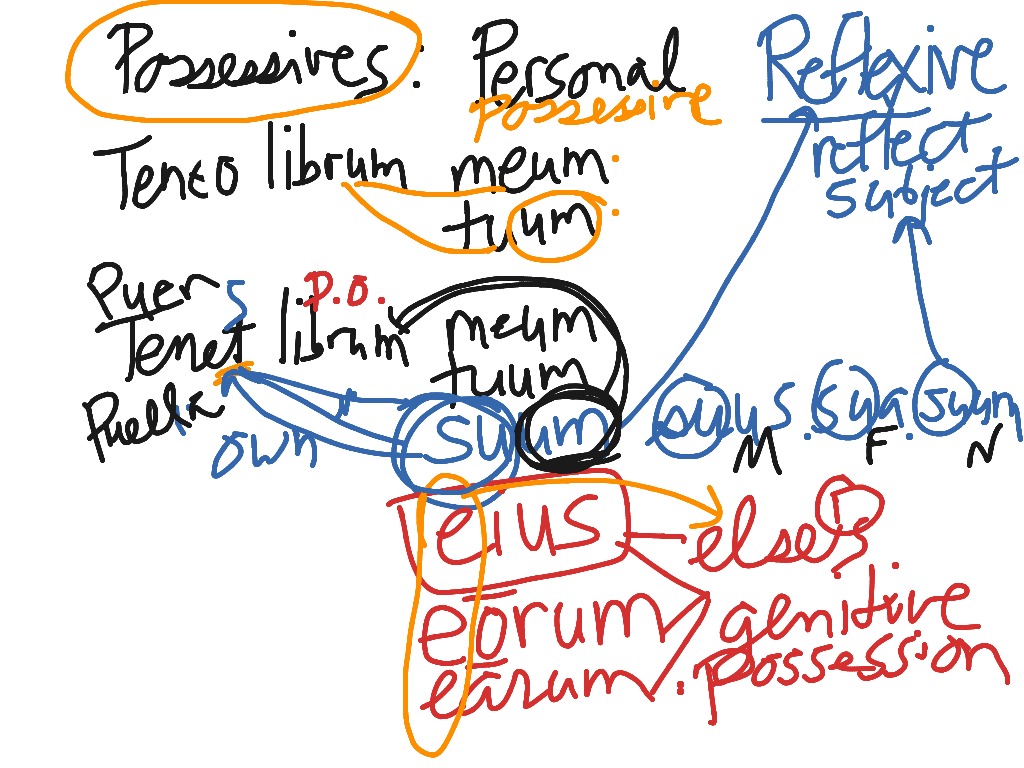 Possessives: Personal Reflexive
possessive
reflect
subject
Teneo librum meum
tuum
Puer s P.O.
Tenet librum meum
tuum
Puella
own suum suus. sua. suum
M F N
eius else's
eorum genitive
earum. possession